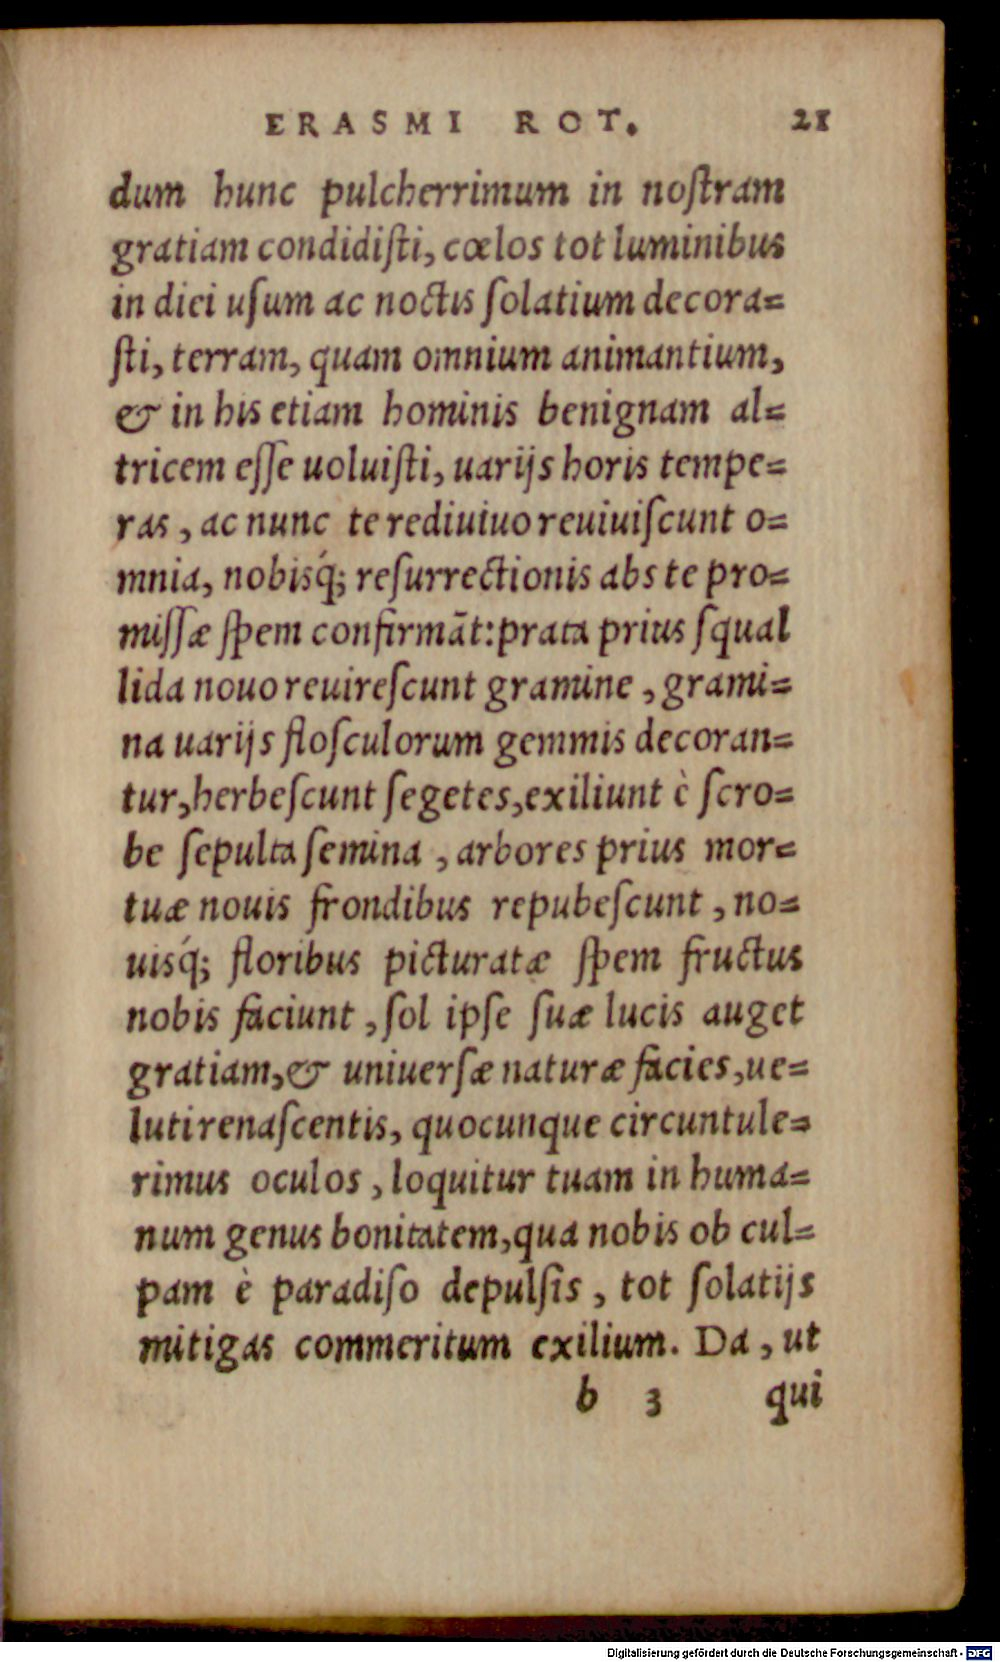 ERASMI ROT. 21
dum hunc pulcherrimum in noſtram
gratiam condidiſti, cœlos tot luminibus
in diei uſum ac noctis ſolatium decora=
ſti, terram, quam omnium animantium,
& in his etiam hominis benignam al=
tricem eſſe uoluiſti, uarijs horis tempe=
ras, ac nunc te rediuiuo reuiuiſcunt o=
mnia, nobisq́; reſurrectionis abs te pro=
miſſæ ſpem confirmāt: prata prius ſqual
lida nouo reuireſcunt gramine, grami=
na uarijs floſculorum gemmis decoran=
tur, herbeſcunt ſegetes, exiliunt è ſcro=
be ſepulta ſemina, arbores prius mor=
tuæ nouis frondibus repubeſcunt, no=
uisq́; floribus picturatæ ſpem fructus
nobis faciunt, ſol ipſe ſuæ lucis auget
gratiam, & uniuerſæ naturæ facies, ue=
luti renaſcentis, quocunque circuntule=
rimus oculos, loquitur tuam in huma=
num genus bonitatem, qua nobis ob cul=
pam è paradiſo depulſis, tot ſolatijs
mitigas commeritum exilium. Da, ut
b 3 qui
Digitalisierung gefördert durch die Deutsche Forschungsgemeinschaft - DFG